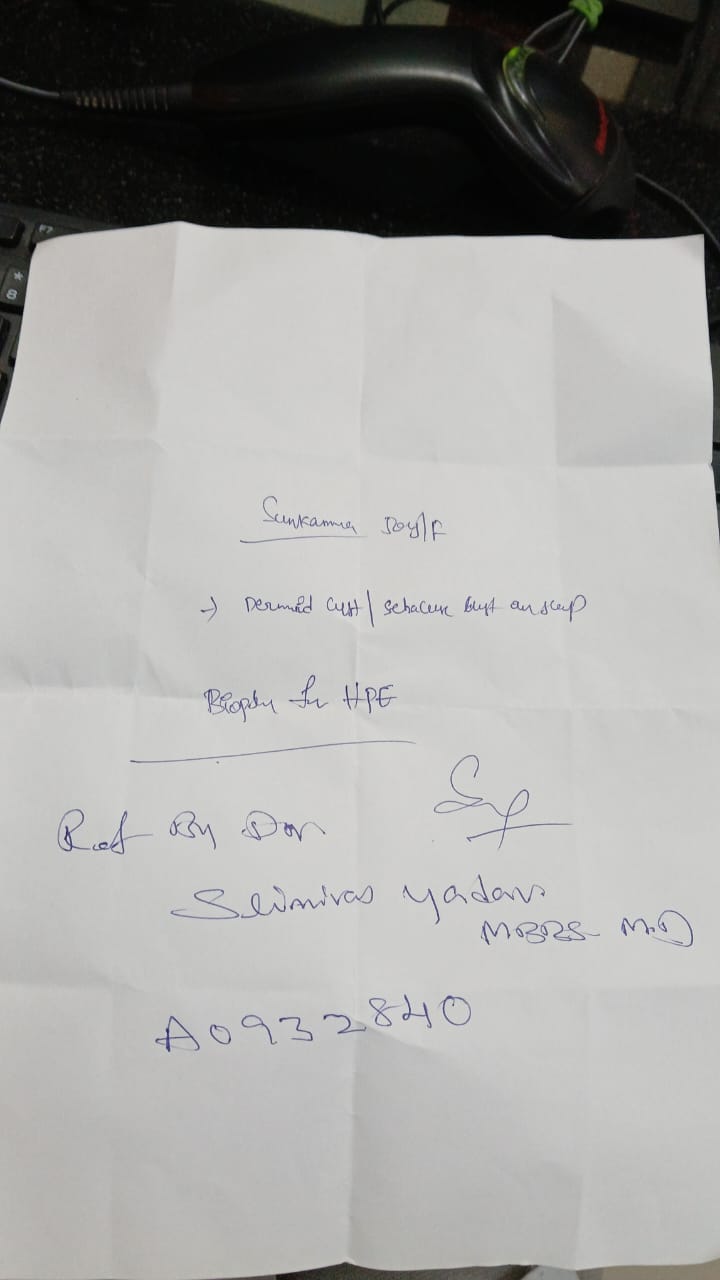 F7
*
8
Sunkamma 50y/F
→ Dermoid cyst / sebaceous cyst on scalp
Biopsy for HPE
Ref By Dor
Srinivas yadav
MBBS M.D
A0932840